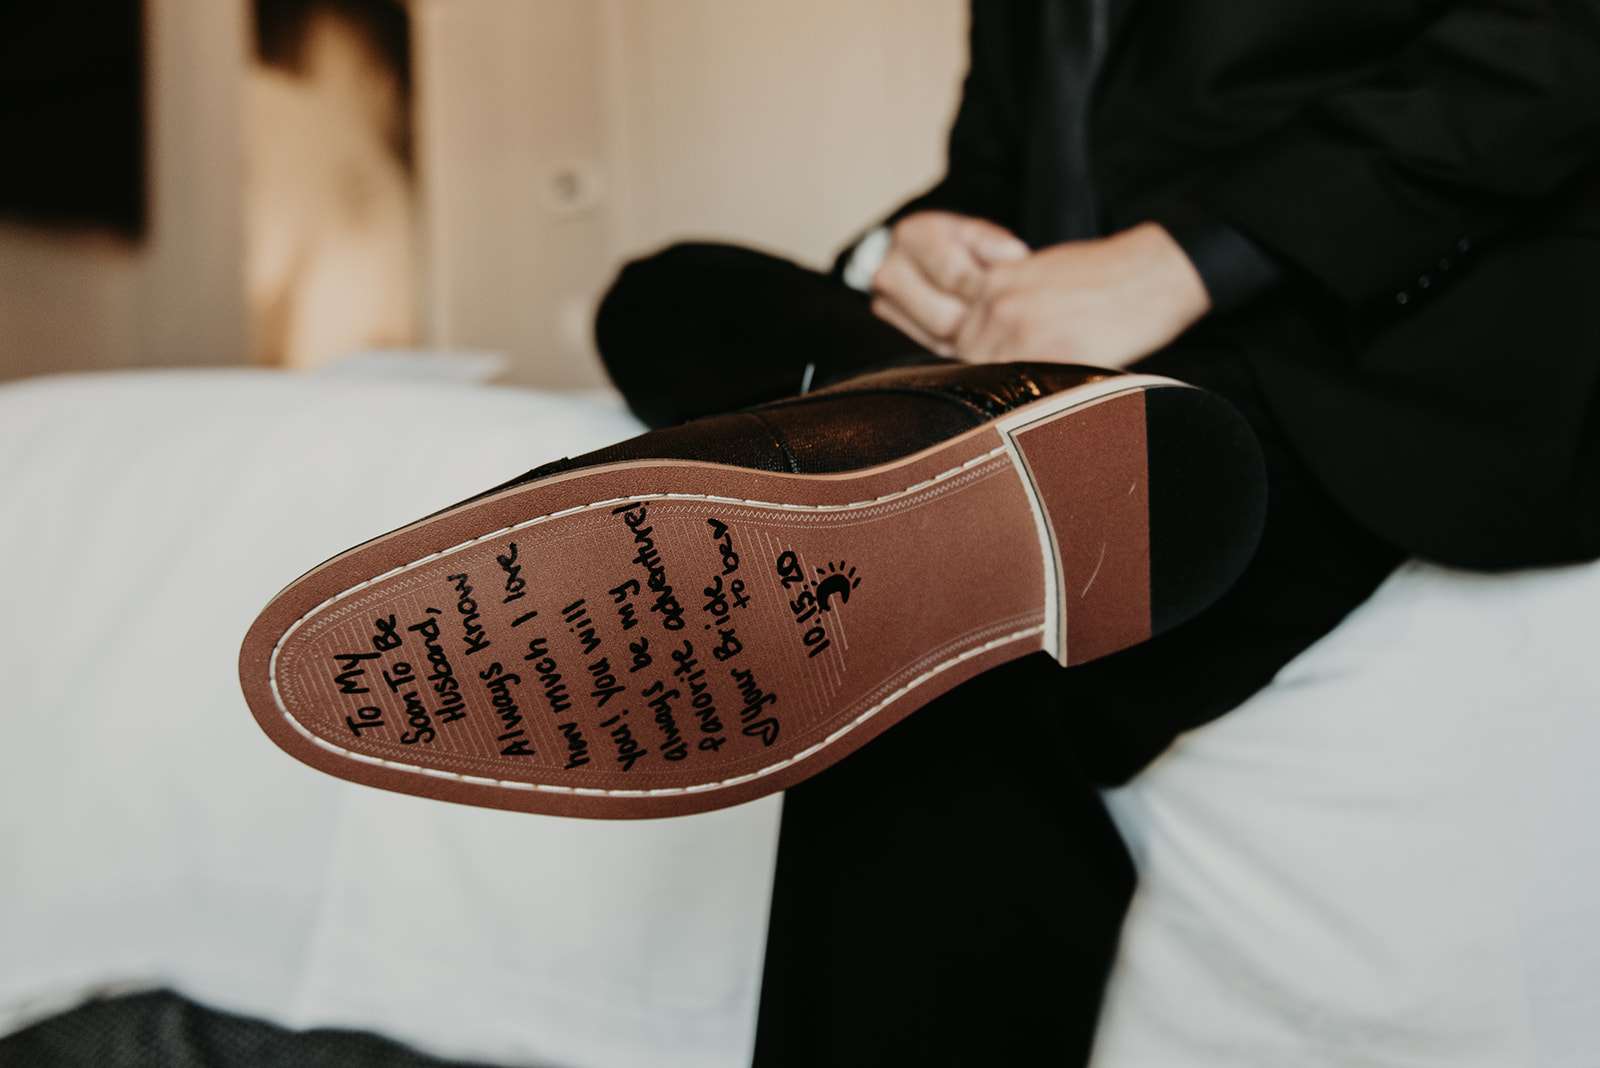 To My
Soon To Be
Husband,
Always Know
how much I love
you! You will
always be my
favorite adventure!
your Bride
to bee
10.15.20